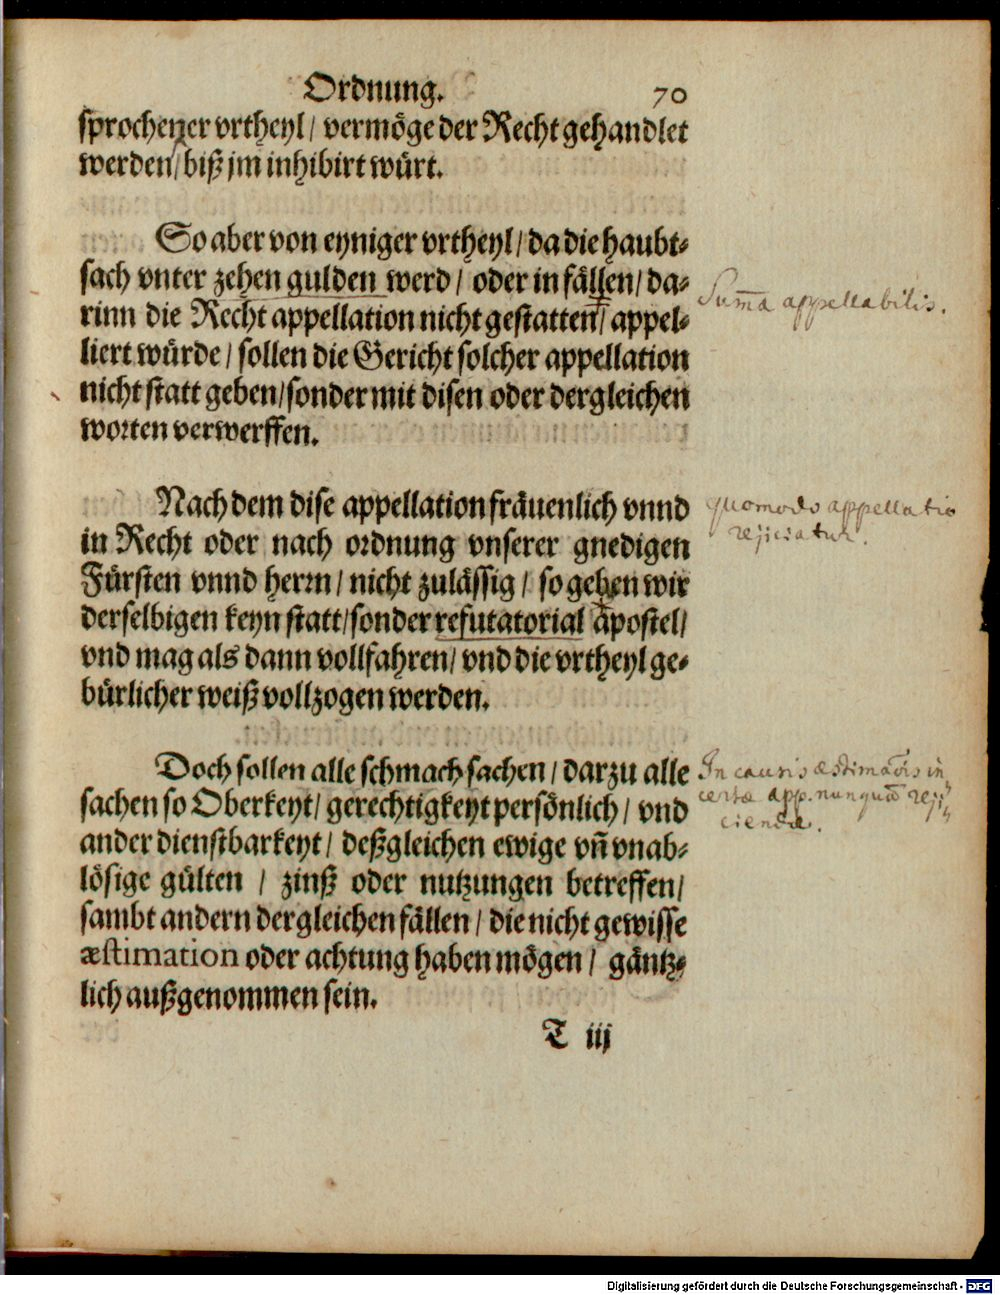 Ordnung. 70
sprochener vrtheyl / vermöge der Recht gehandlet
werden / biß jm inhibirt würt.
So aber von eyniger vrtheyl / da die haubt⸗
sach vnter zehen gulden werd / oder in fällen / da⸗
rinn die Recht appellation nicht gestatten / appel⸗
liert würde / sollen die Gericht solcher appellation
nicht statt geben / sonder mit disen oder dergleichen
worten verwerffen.
Sum̃a appellabilis.
Nach dem dise appellation fräuenlich vnnd
in Recht oder nach ordnung vnserer gnedigen
Fürsten vnnd herrn / nicht zulässig / so geben wir
derselbigen keyn statt / sonder refutatorial apostel /
vnd mag als dann vollfahren / vnd die vrtheyl ge⸗
bürlicher weiß vollzogen werden.
quomodo appellatio
rejiciatur.
Doch sollen alle schmach sachen / darzu alle
sachen so Oberkeyt / gerechtigkeyt persönlich / vnd
ander dienstbarkeyt / deßgleichen ewige vñ vnab⸗
lösige gülten / zinß oder nutzungen betreffen /
sambt andern dergleichen fällen / die nicht gewisse
æstimation oder achtung haben mögen / gäntz⸗
lich außgenommen sein.
In causis æstimaõis in
certæ app. nunquã reji
ciendæ.
T iij
Digitalisierung gefördert durch die Deutsche Forschungsgemeinschaft - DFG